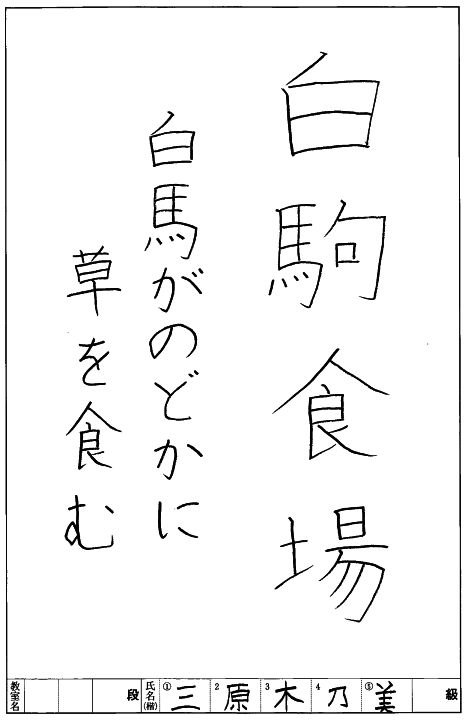 白駒食場
白馬がのどかに
草を食む
教室名 段 氏名(楷) ①三 2原 3木 4乃 ⑤美 級